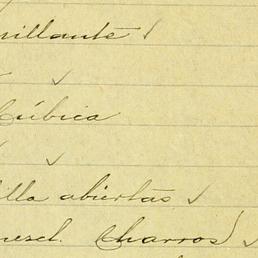 rillante
Cúbica
illa abiertas
mezcl. Charros